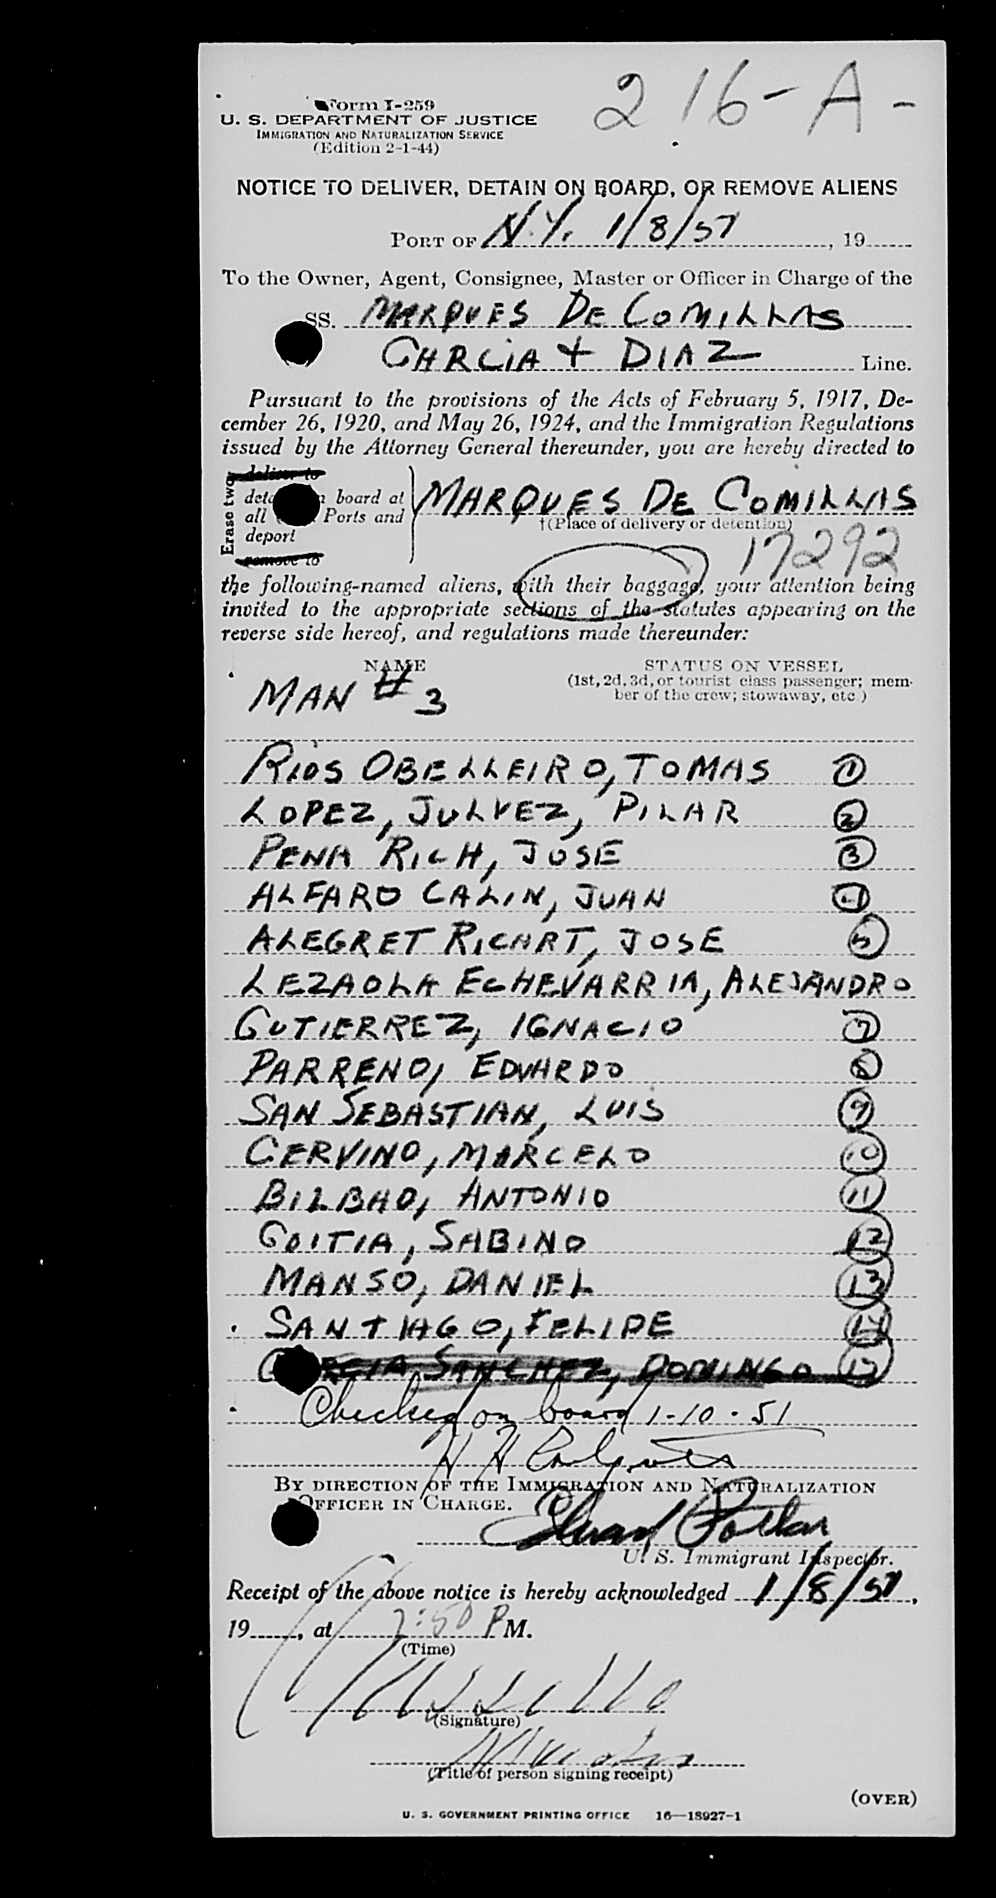 216-A-
Form I-259
U. S. DEPARTMENT OF JUSTICE
IMMIGRATION AND NATURALIZATION SERVICE
(Edition 2-1-44)
NOTICE TO DELIVER, DETAIN ON BOARD, OR REMOVE ALIENS
PORT OF N.Y. 1/8/51, 19
To the Owner, Agent, Consignee, Master or Officer in Charge of the
SS. MARQUES DE COMILLAS
GARCIA + DIAZ Line.
Pursuant to the provisions of the Acts of February 5, 1917, De-
cember 26, 1920, and May 26, 1924, and the Immigration Regulations
issued by the Attorney General thereunder, you are hereby directed to
Erase two
deliver to
board at
all Ports and
deport
remove to
MARQUES DE COMILLAS
†(Place of delivery or detention)
17292
the following-named aliens, with their baggage, your attention being
invited to the appropriate sections of the statutes appearing on the
reverse side hereof, and regulations made thereunder:
NAME STATUS ON VESSEL
(1st, 2d, 3d, or tourist class passenger; mem-
ber of the crew; stowaway, etc.)
MAN # 3
RIOS OBELLEIRO, TOMAS 1
LOPEZ, JULVEZ, PILAR 2
PENA RICH, JOSE 3
ALFARO CALIN, JUAN 4
ALEGRET RICART, JOSE 5
LEZAOLA ECHEVARRIA, ALEJANDRO
GUTIERREZ, IGNACIO 7
PARRENO, EDUARDO 8
SAN SEBASTIAN, LUIS 9
CERVINO, MARCELO 10
BILBAO, ANTONIO 11
GOITIA, SABINO 12
MANSO, DANIEL 13
SANTIAGO, FELIPE 14
GARCIA SANCHEZ, DOMINGO 15
Checked on board 1-10-51
BY DIRECTION OF THE IMMIGRATION AND NATURALIZATION
OFFICER IN CHARGE.
U. S. Immigrant Inspector.
Receipt of the above notice is hereby acknowledged 1/8/51,
19, at PM.
(Time)
(Signature)
(Title of person signing receipt)
(OVER)
U. S. GOVERNMENT PRINTING OFFICE 16—18927-1